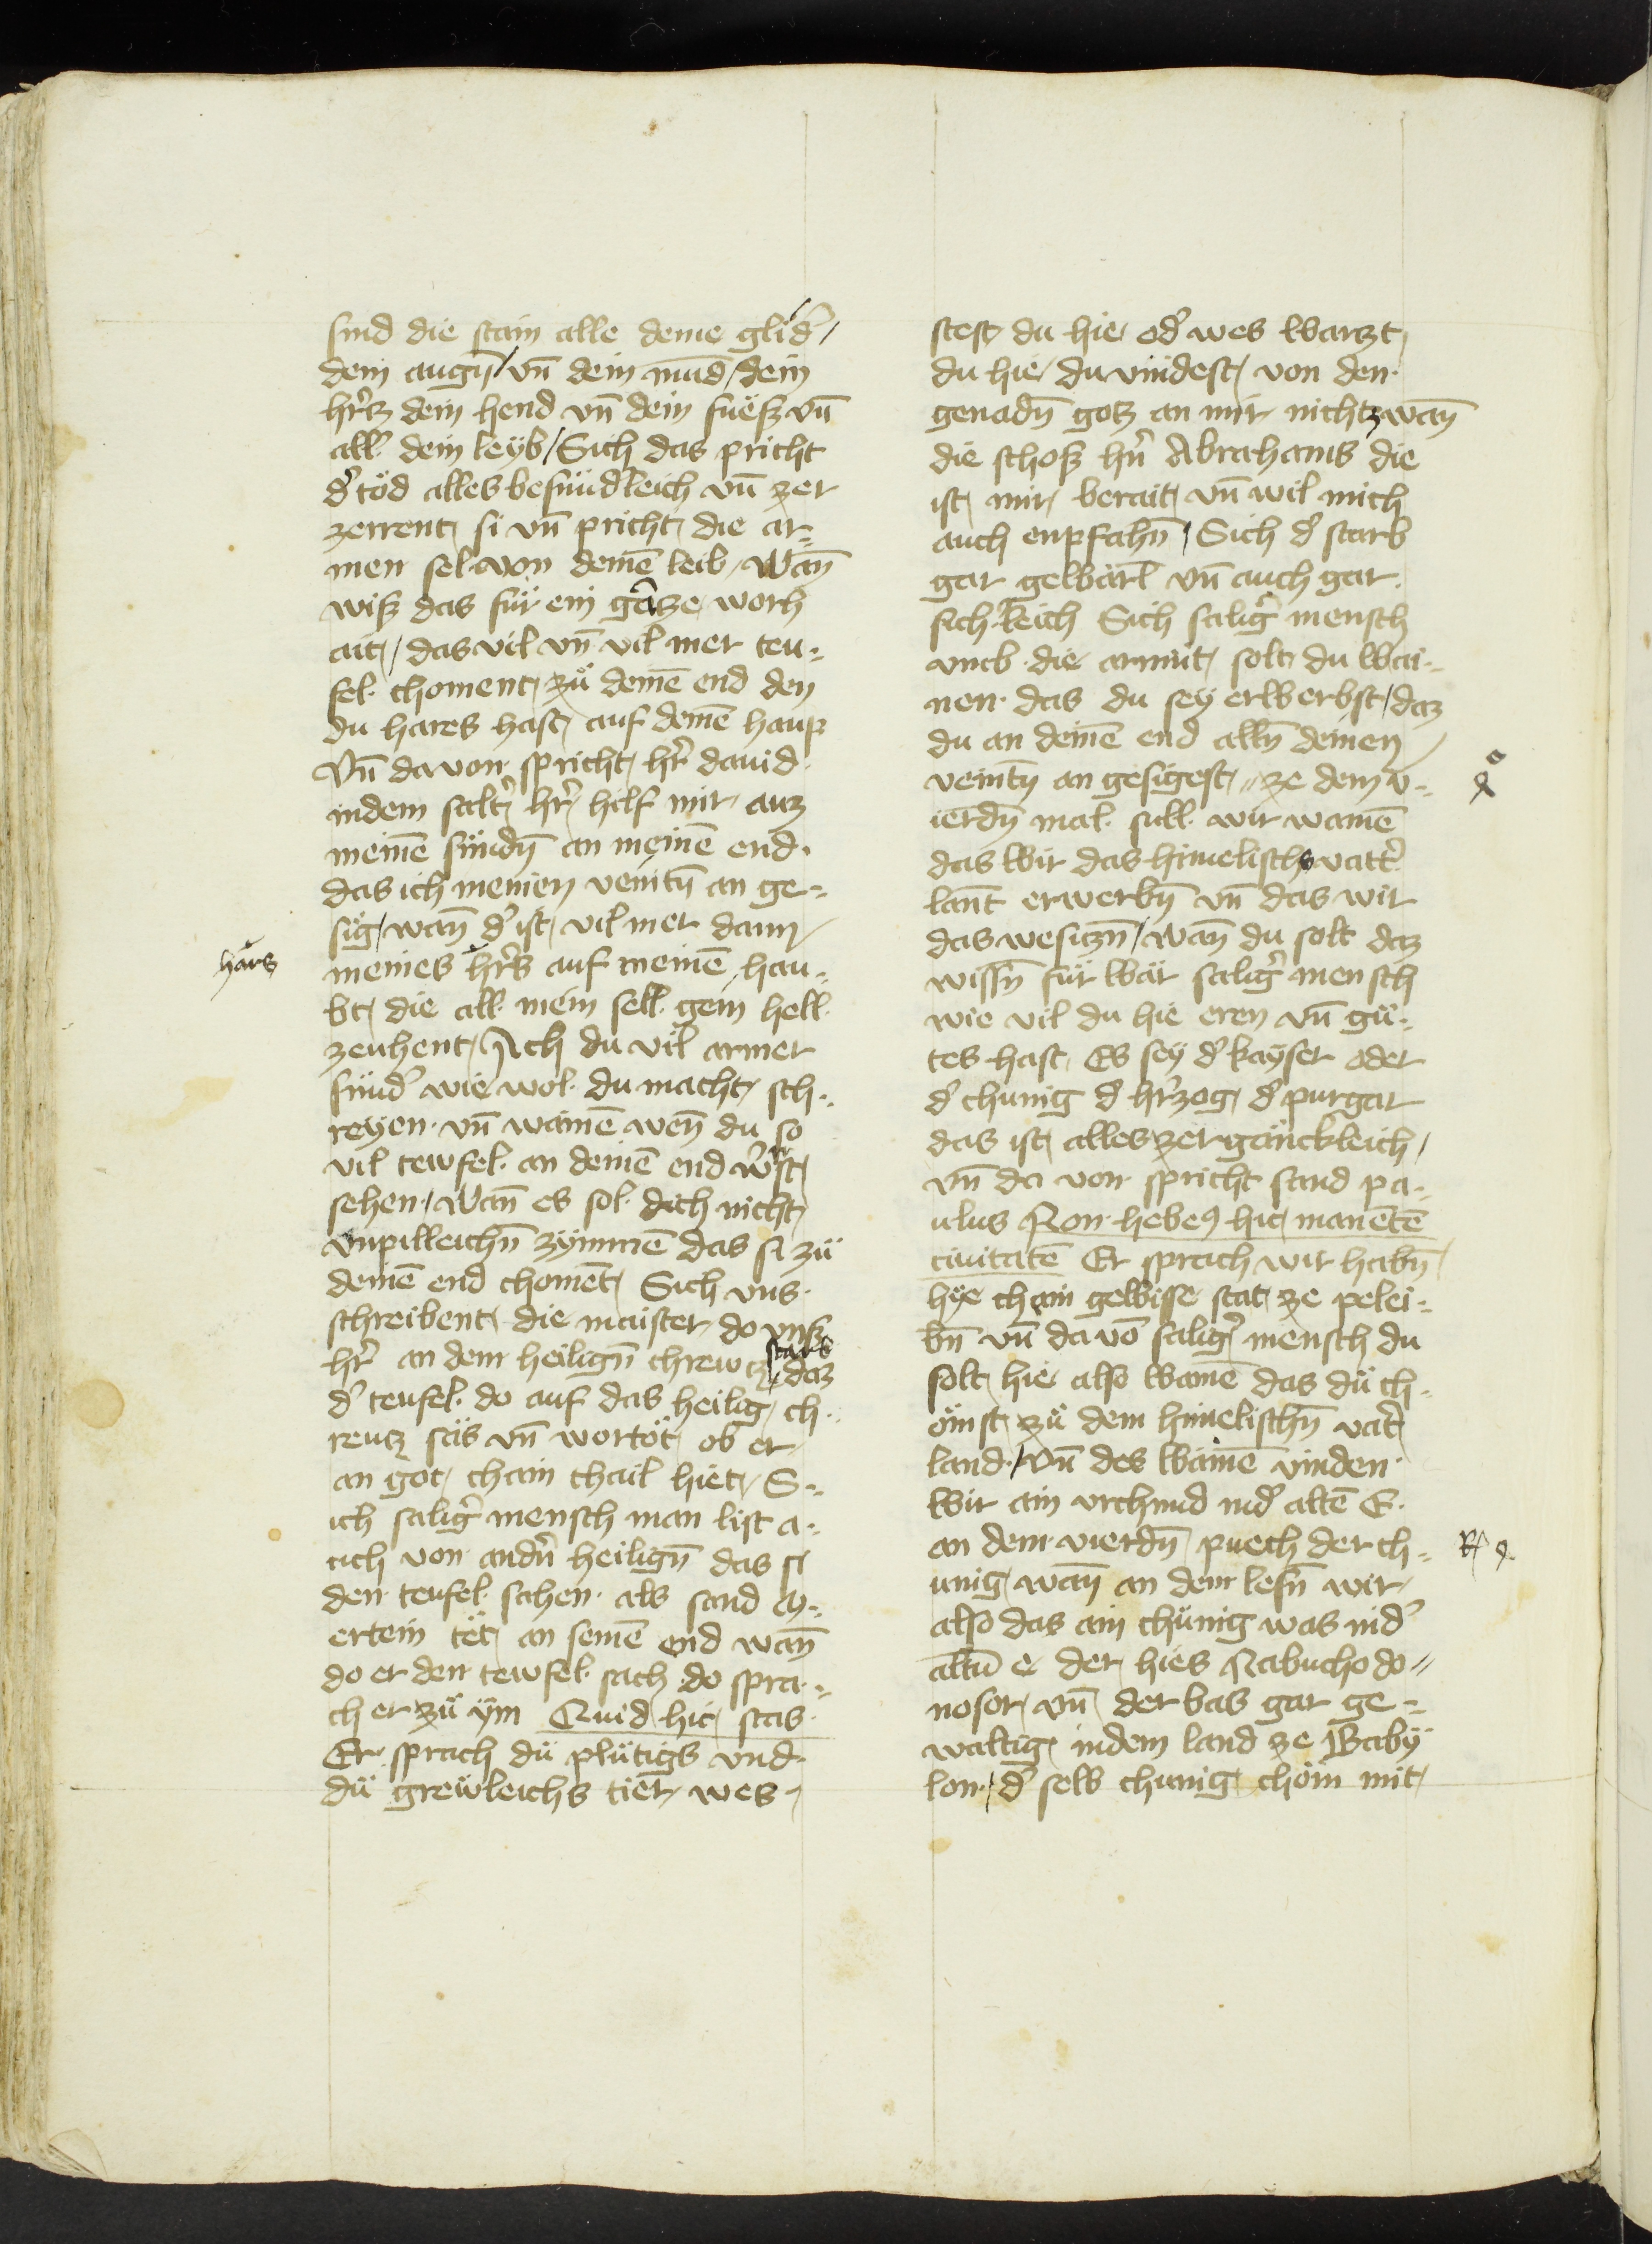 sind die stain alle deine glid̉
dein augn̄ / vn̄ dein mūd / dein
hr̉tz dein hend vn̄ dein fuësz vn̄
all dein leyb / Sich das pricht
d̉ töd alles besundleich vn̄ zer
zerrent si vn̄ pricht die ar⸗
men sel von deinē leib / Wan̄
wisz das für ein gâtze worh
ait / das vil vn̄ vil mer teu⸗
fel choment zů deinē end den
du hares hast auf deinē haup
Vn̄ davon spricht hr̉ david
indem salt̉ hr̉ hilf mir auz
meinē sündn̄ an meinē end
das ich meinen veintn̄ an ge⸗
sig / wan̄ d̉ ist vil mer dann
hars
meines hr̉s auf meinē hau⸗
bt die all mein sell gein hell
zeuhent / Ach du vil armer
sünd̉ wie wol du macht sch⸗
reyen vn̄ wainē wen̄ du so
vil tewfel an deinē end w̉st
sehen / Wan̄ es sol dich nicht
vnpilleichn̄ zymmē das si zů
deinē end chomēt Sich vns
schreibent die maister do vnsz
hr̉ an dem heilign̄ chrewtz starb daz
d̉ teufel do auf das heilig ch⸗
reutz säs vn̄ wortöt ob er
an got chain thail hiet / S⸗
ich salig̉ mensch man list a⸗
uch von andn̉ heilign̄ das si
den teufel sahen als sand M⸗
ertein tët an seinē end wan̄
do er den tewfel sach do spra⸗
ch er zů ym Quid hic stas
Er sprach dü plütigs vnd
dü grewleichs tier wes
stest du hie od̉ wes wartzt
du hie / du vindest von den
genadn̄ gotz an mir nichtz wan̄
die schosz hn̉ Abrahams die
ist mir berait vn̄ wil mich
auch enpfahn̄ / Sich d̉ starb
gar gewärl vn̄ auch gar
sich leich Sich salig̉ mensch
vmb die armüt solt du wai⸗
nen das du sey erwerbst / daz
du an deinē end alln̄ deinen
veintn̄ an gesigest // ze dem v⸗
ierdn̄ mal süll wir wainē
das wir das himelisch vatt̉
lan̄t erwerbn̄ vn̄ das wir
das wesitzn̄ / Wan̄ du solt daz
wissn̄ für wär salig̉ mensch
wie vil du hie eren vn̄ gü⸗
tes hast Es sey d̉ kayser oder
d̉ chunig d̉ hr̉zog d̉ purgar
das ist alles zergänckleich /
vn̄ da von spricht sand pa⸗
ulus Non hebeꝯ hic manētē
ciuitatē Er sprach wir habn̄
hye chain gewisse stat ze pelei⸗
bn̄ vn̄ da vō salig̉ mensch du
solt hie also wainē das du ch⸗
ömst zů dem himelischn̄ vat̉
land / Vn̄ des wainē vinden
wir ain vrchund ind̉ altē E
an dem vierdn̄ puech der ch⸗
unig / wan̄ an dem lesn̄ wir
also das ain chünig was ind̉
altn̄ e der hies Nabuchodo⸗
nosor vn̄ der bas gar ge⸗
waltig indem land ze Baby
lon / d̉ selb chunig chöm mit